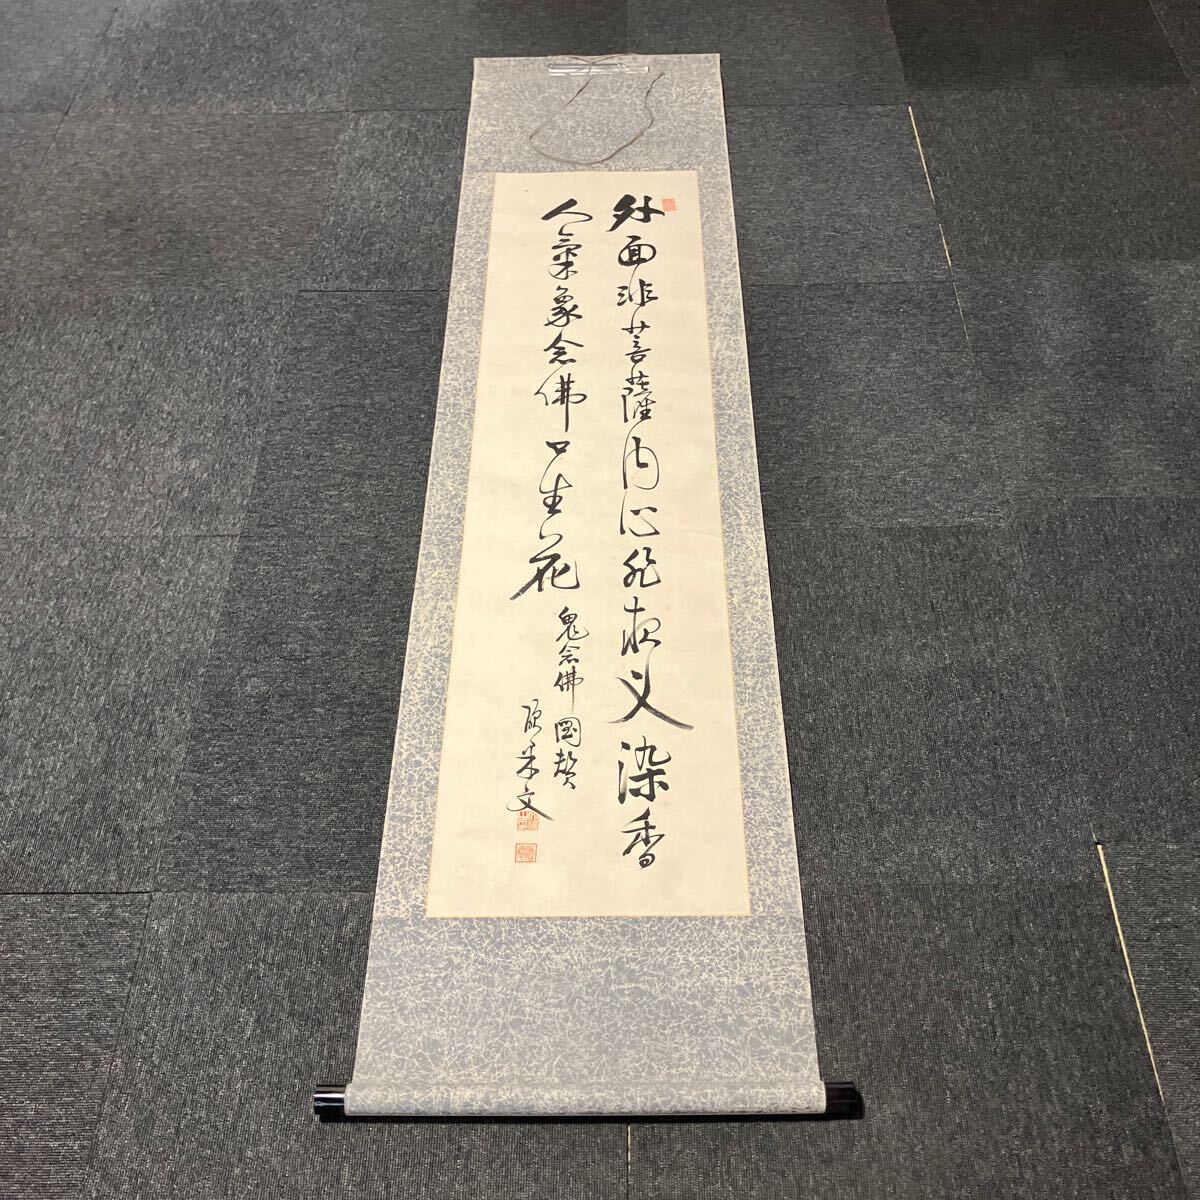 外面非菩薩内心非夜叉染香
人氣象念佛口生花
鬼念佛圖賛
米文